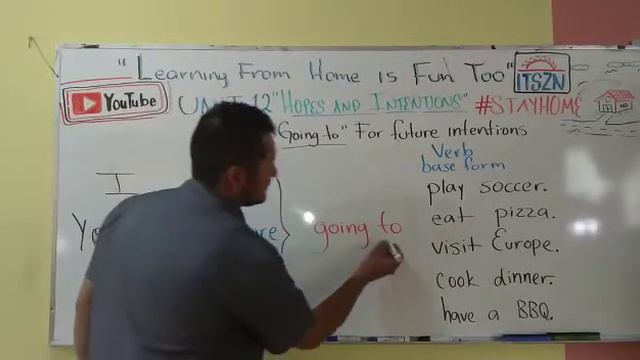 "Learning From Home is Fun Too"
ITSZN
YouTube
UNIT 12 "HOPES AND INTENTIONS" #STAYHOME
"Going to" For future intentions
Verb
base form
I
going to
play soccer.
eat pizza.
visit Europe.
cook dinner.
have a BBQ.